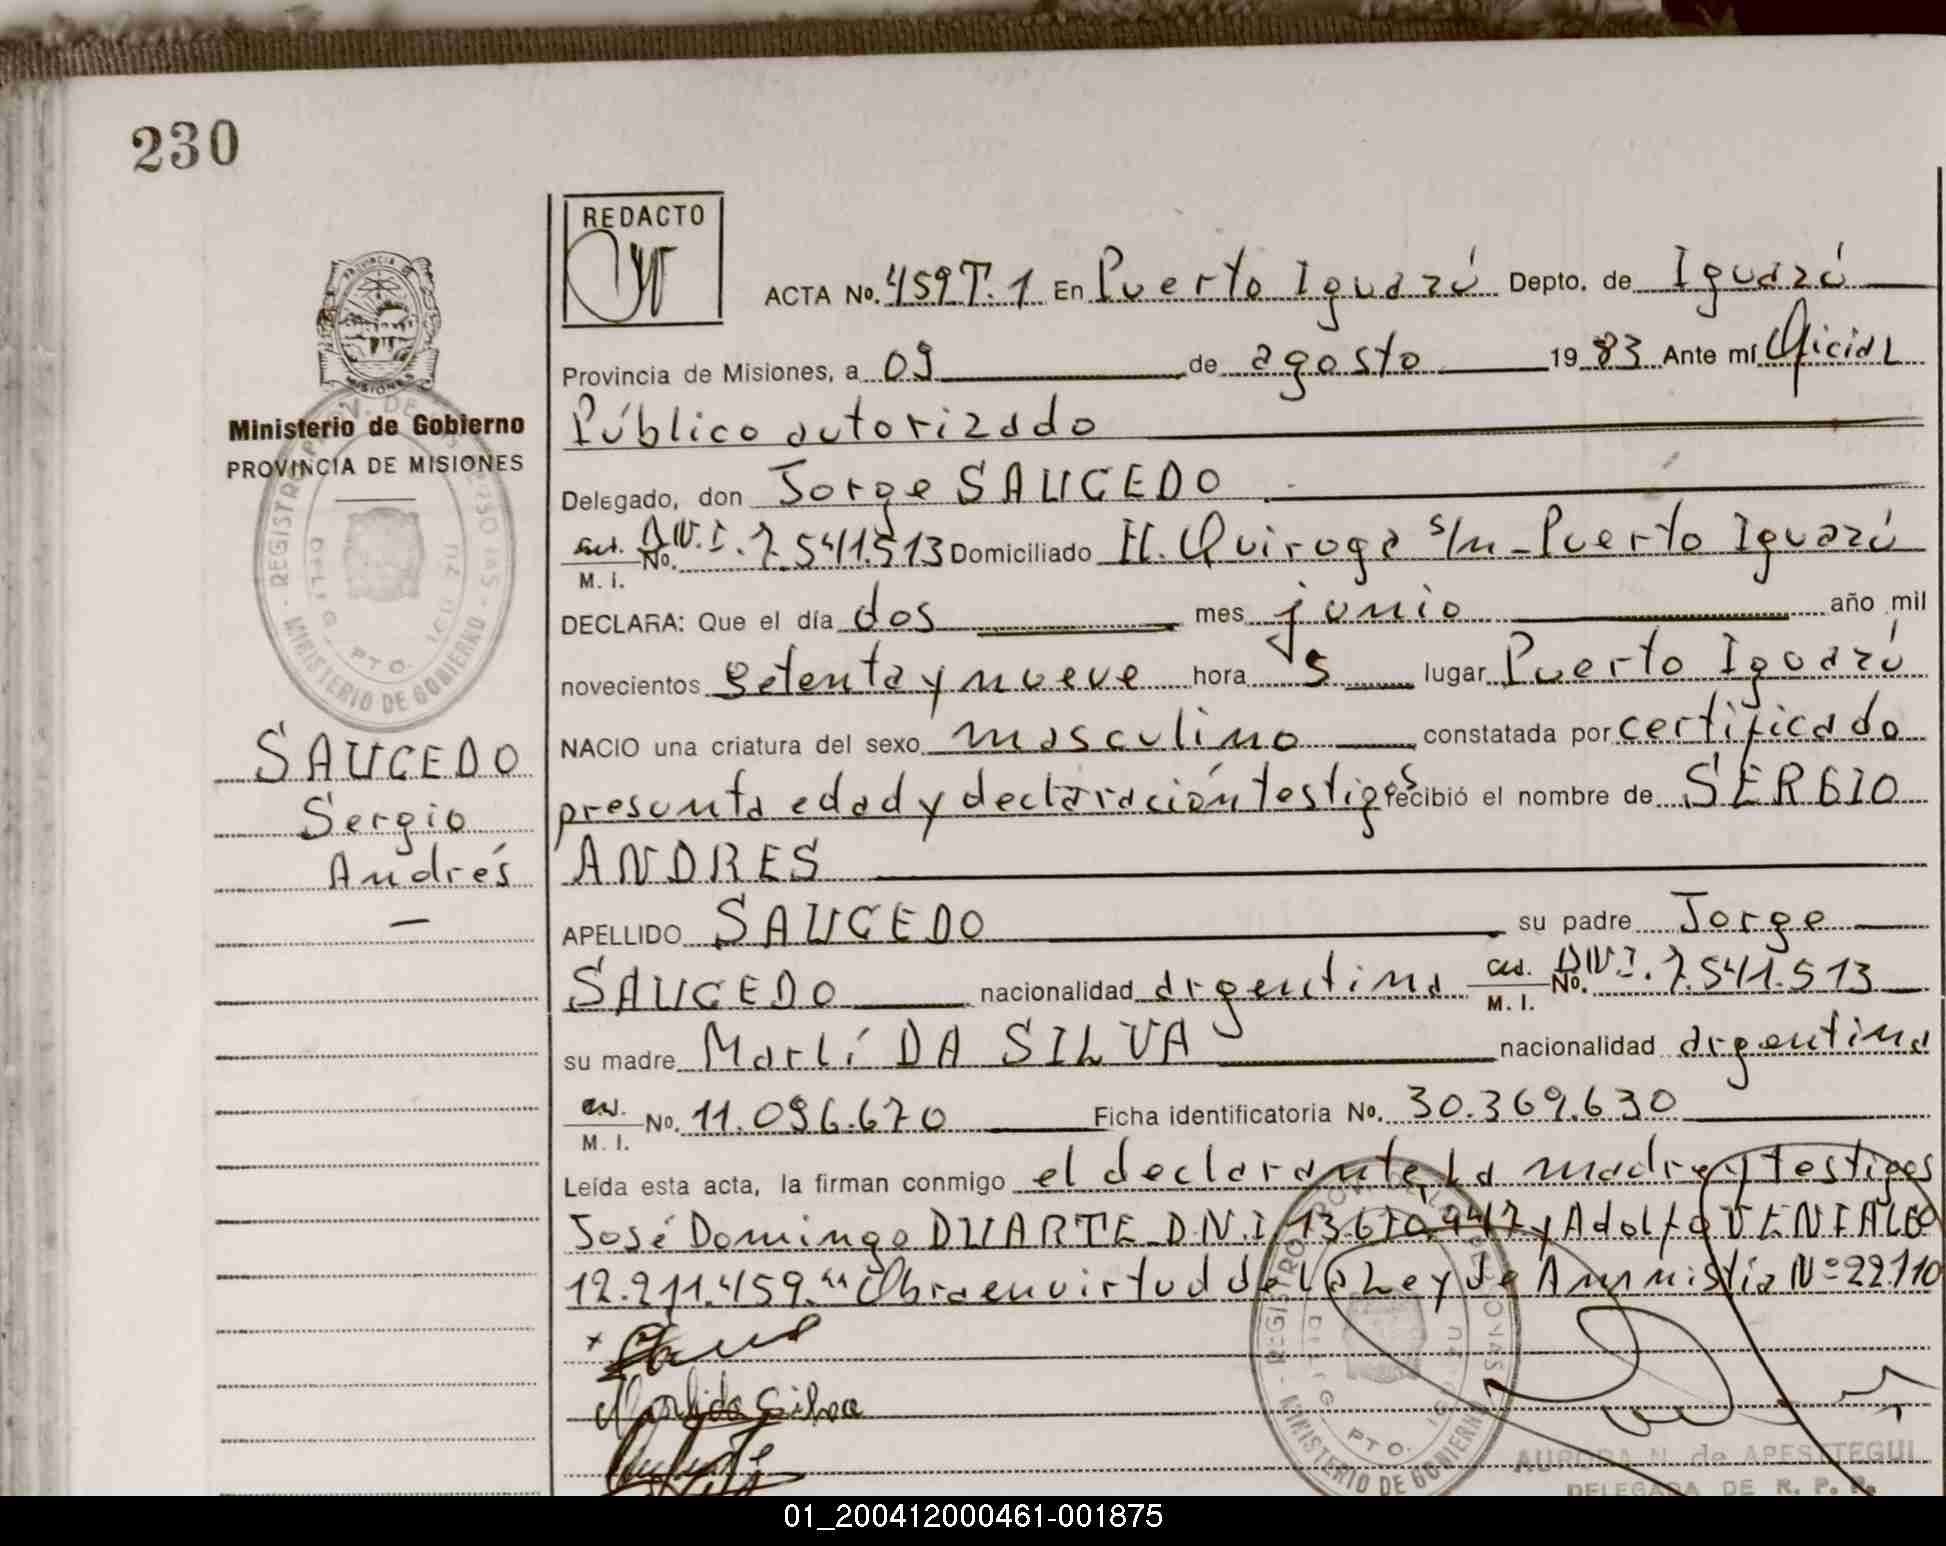 230
REDACTO
ACTA No. 459 T. 1 En Puerto Iguazú Depto. de Iguazú
Provincia de Misiones, a 09 de agosto 1983 Ante mí Oficial
Público autorizado
Delegado, don Jorge SAUCEDO
M. I. No. D.N.I. 7.541.513 Domiciliado H. Quiroga s/n - Puerto Iguazú
DECLARA: Que el día dos mes junio año mil
novecientos setenta y nueve hora 5 lugar Puerto Iguazú
NACIO una criatura del sexo masculino constatada por certificado
presunta edad y declaración testigos recibió el nombre de SERGIO
ANDRES
APELLIDO SAUCEDO su padre Jorge
SAUCEDO nacionalidad argentina M. I. No. DNI. 7.541.513
su madre Marlí DA SILVA nacionalidad argentina
M. I. No. 11.096.670 Ficha identificatoria No. 30.369.630
Leída esta acta, la firman conmigo el declarante, la madre y testigos
José Domingo DUARTE D.N.I. 13.670.947 y Adolfo
12.211.459. "" Obra en virtud de la Ley de Ammistia Nº 22.110
Marli da Silva
AURORA N. de APESTEGUI
DELEGADA DE R. P. P.
PROVINCIA DE MISIONES
Ministerio de Gobierno
PROVINCIA DE MISIONES
MINISTERIO DE GOBIERNO
SAUCEDO
Sergio
Andrés
MINISTERIO DE GOBIERNO
01_200412000461-001875